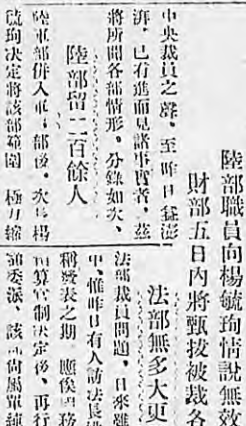 陸部職員向楊毓珣情說無效
財部五日內將甄拔被裁各
中央裁員之聲、至昨日益澎
湃、已有進而見諸事實者、茲
將所聞各部情形、分錄如次、
陸部留二百餘人
陸軍部併入軍部後、次長楊
毓珣決定將該部範圍極力縮
法部無多大更
法部裁員問題、日來雖
中、惟昨日有人訪法長
稱發表之期、應俟國務
算官制決定後、再行
額委派、該附屬單純